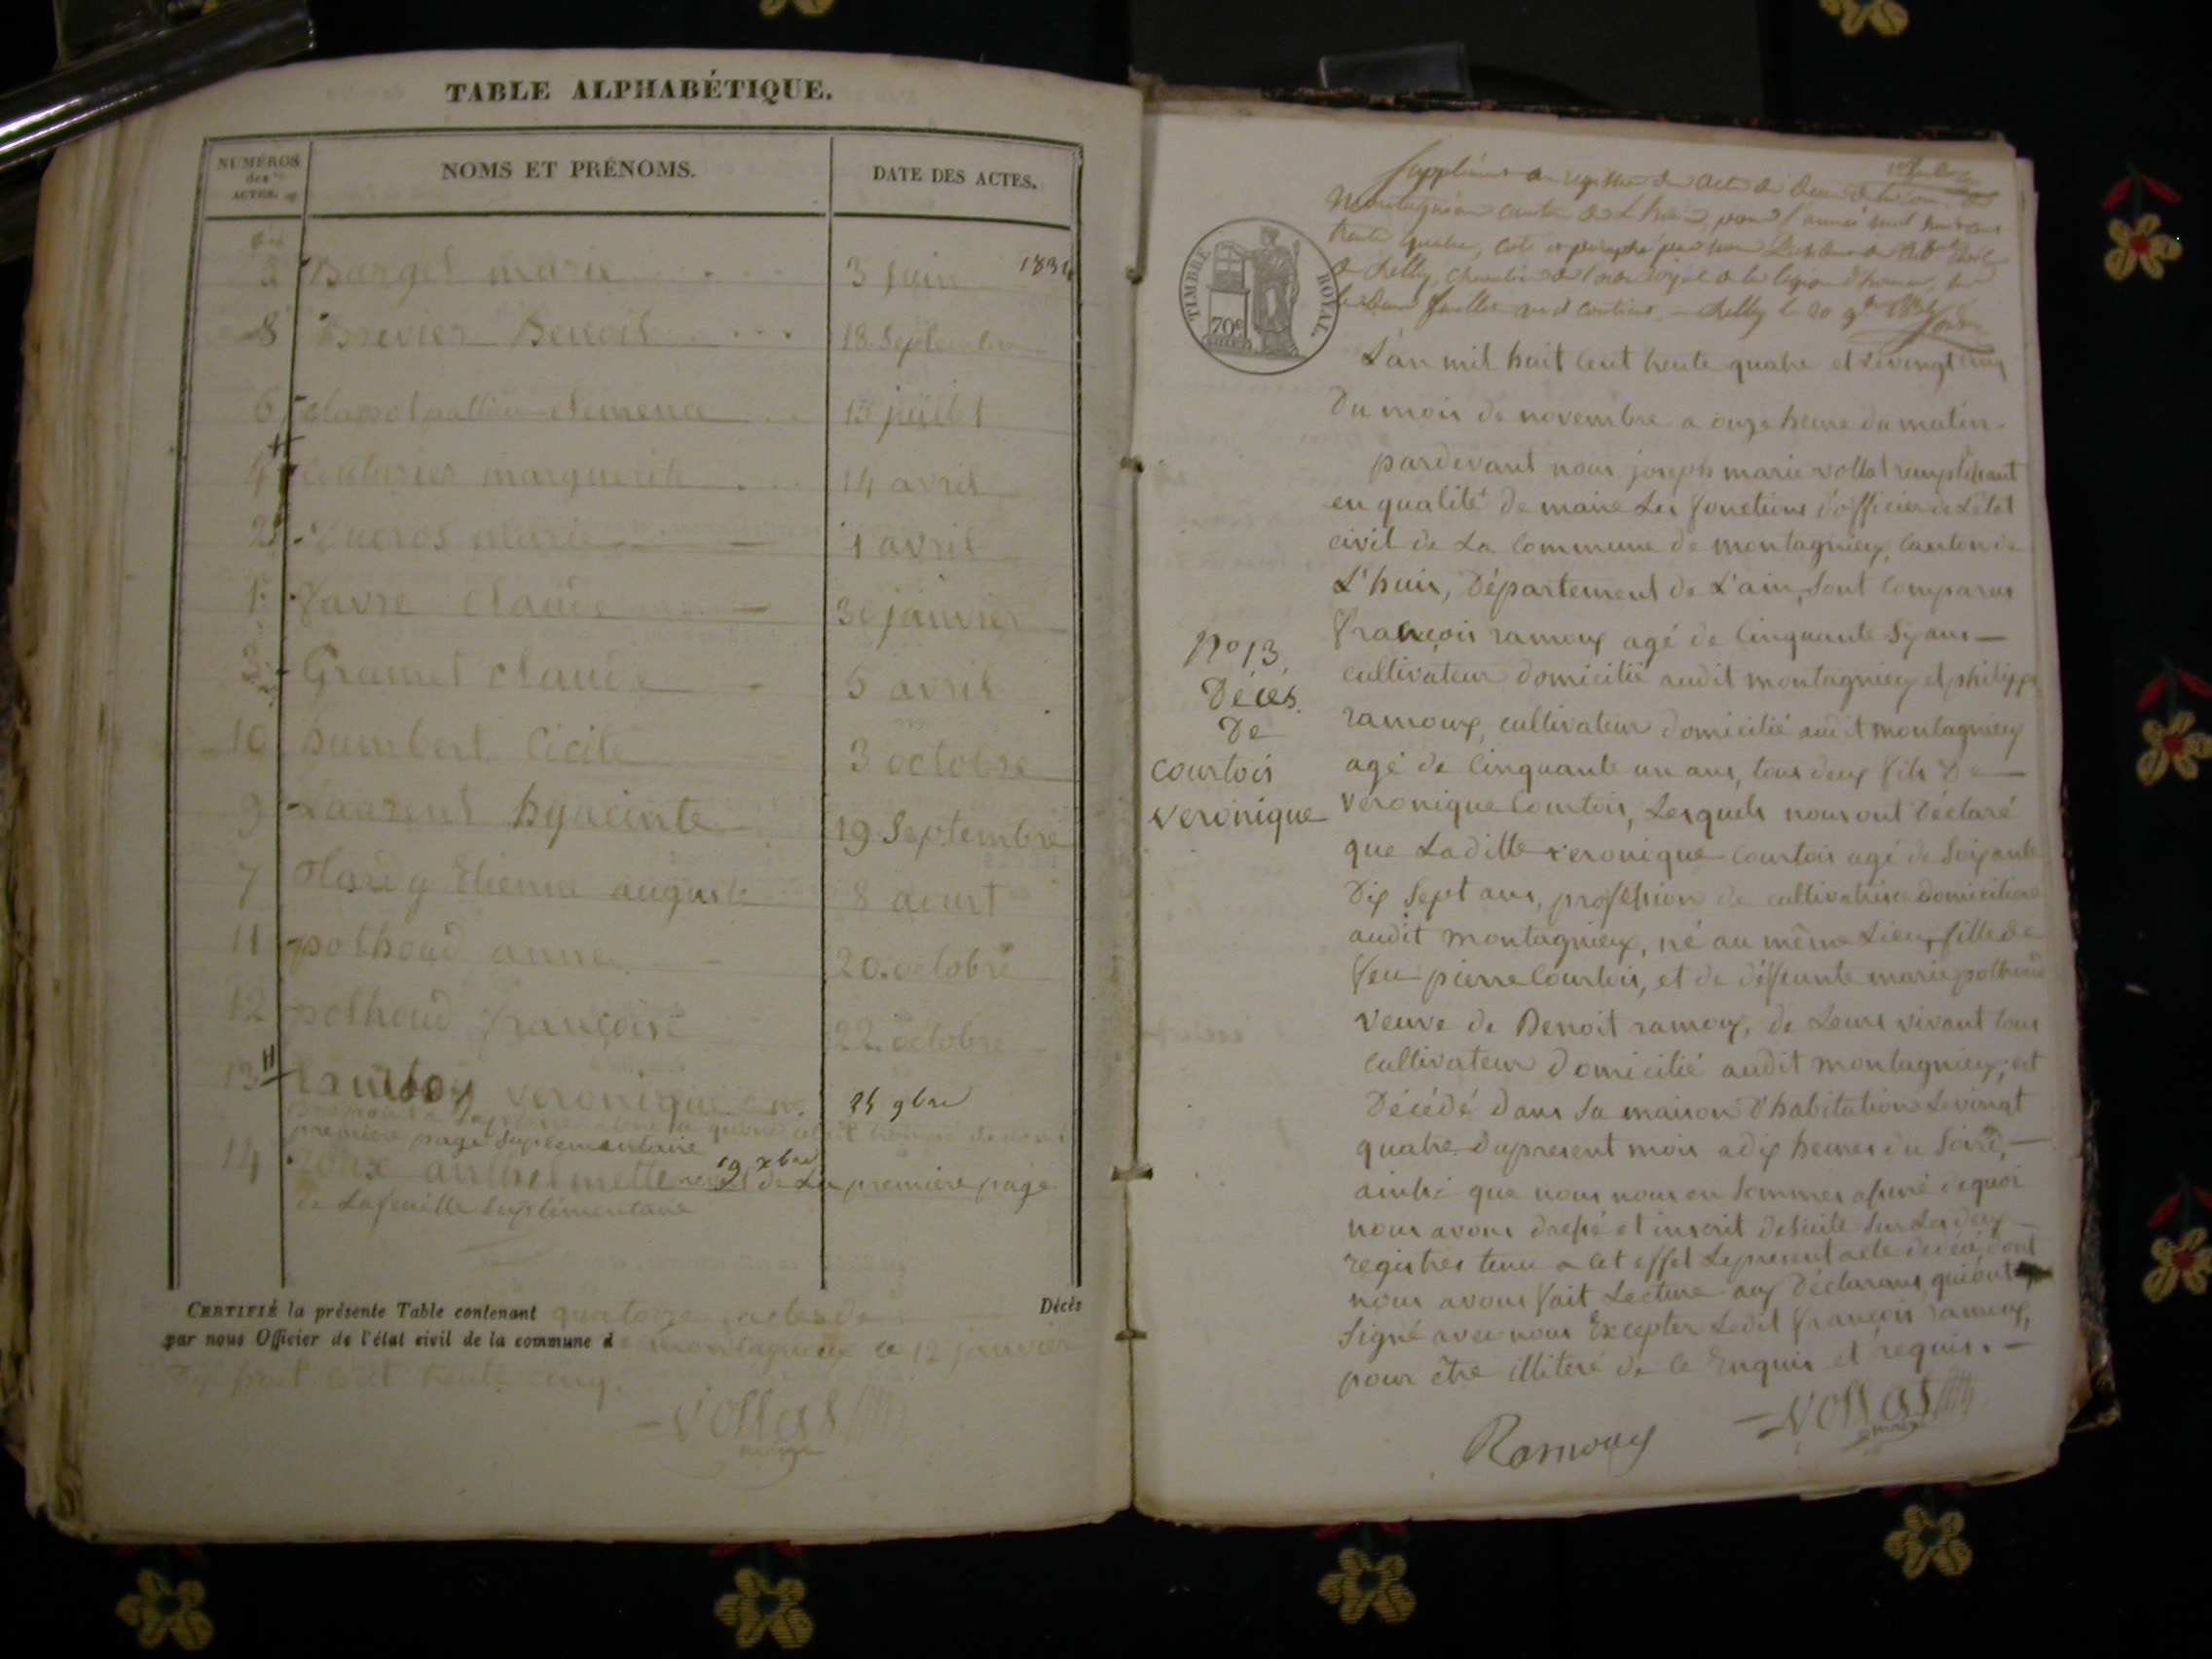 TABLE ALPHABÉTIQUE.
NUMÉROS des ACTES.
NOMS ET PRÉNOMS.
DATE DES ACTES.
5 Barget marie 3 juin 1834
8 Brevier Benoit 18 Septembre
6 Clemence 15 juillet
4 Couturier marguerite 14 avril
2 Ducros marie 1 avril
1 favre Claude 30 janvier
3 Gramet claude 5 avril
10 humbert Cicile 3 octobre
9 Laurent hyacinte 19 Septembre
7 Etienne auguste 8 aoust
11 pothoud anne 20 octobre
12 pothoud françoise 22 octobre
13 veronique 25 9bre
premiere page Suplementaire
14 roux anthelmette 19 xbre de La première page
de Lafeuille Suplémentaire
CERTIFIÉ la présente Table contenant quatorze actes de Décès
par nous Officier de l'état civil de la commune de montagnieux ce 12 janvier
Dix huit cent trente cinq.
Vollat
maire
Supplément au registre des actes de décès de la
montagnieu canton de Lhuis, pour l'année mil huit cent
trente quatre, coté et paraphé par nous
de Belley, chevalier de l'ordre royal de la légion d'honneur,
feuillet — Belley le 20 9bre 1834
TIMBRE ROYAL.
70c
L'an mil huit cent trente quatre et Levingt cinq
Du mois de novembre a onze heure du matin.
pardevant nous joseph marie vollat remplissant
en qualité de maire Les fonctions d'officier de L'état
civil de La Commune de montagnieux, Canton de
L'huis, Département de L'ain, Sont Comparus
françois ramoux agé de Cinquante Six ans —
cultivateur domicilié audit montagnieux et philippe
ramoux, cultivateur domicilié audit montagnieux
agé de Cinquante un ans, tous deux fils De —
veronique Courtois, Lesquels nous ont Déclaré
que Laditte veronique Courtois agé de Soixante
Dix Sept ans, profession de cultivatrice domiciliée
audit montagnieux, né au même Lieu, fille de
feu pierre Courtois, et de déffunte marie pothoud
veuve de Benoit ramoux, de Leurs vivant tous
Cultivateur Domicilié audit montagnieux, est
Décédé dans Sa maison D'habitation Levingt
quatre Dupresent mois a dix heures du Soire, —
ainsi que nous nous en Sommes assuré dequoi
nous avons dressé et inscrit desuite Sur Les deux
registres tenu a cet effet Lepresent acte dont
nous avons fait Lecture aux Déclarans qui ont
Signé avec nous Excepter Ledit françois ramoux,
pour être illiteré de ce Enquis et requis. —
No 13.
Décès
De
Courtois
veronique
Ramoux
Vollat
maire